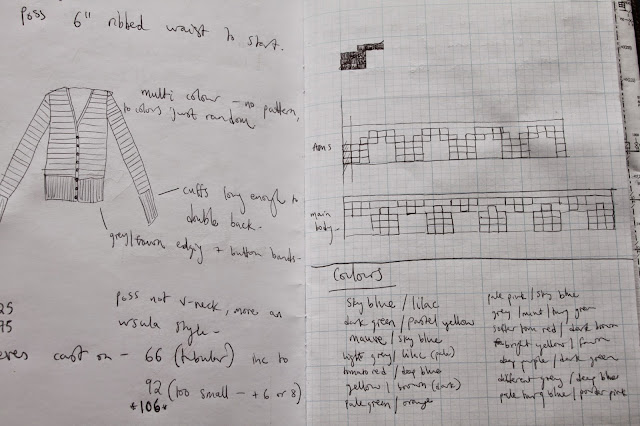 Poss 6" ribbed waist to start.
multi colour - no pattern,
to colors just random
cuffs long enough to
double back.
grey/fawn edging + button bands-
25
75
poss not v-neck, more an
ursula style-
cast on - 66 (tubular) inc to
92 (too small - + 6 or 8)
*106*
Arms
main
body-
Colours
Sky blue / lilac
dark green / pastel yellow
mauve / sky blue
light grey / lilac (pale)
tomato red / deep blue
yellow / brown (dark)
pale green / orange
pale pink / sky blue
grey / mint / grey green
softer tom red / dark brown
bright yellow / fawn
deep purple / dark green
different grey / deep blue
pale blue / powder pink